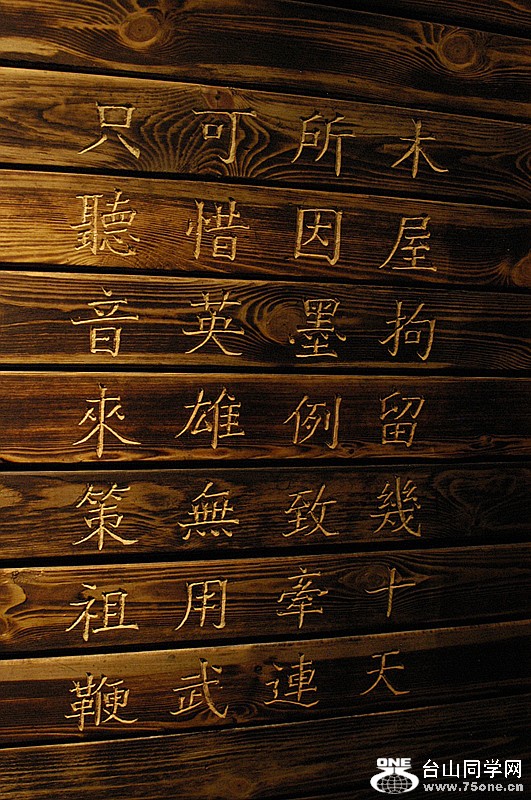 木屋拘留幾十天
所因墨例致牽連
可惜英雄無用武
只聽音來策祖鞭
ONE
台山同学网
www.75one.cn